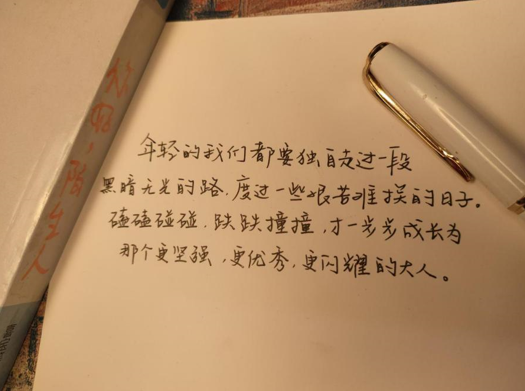 你好,陌生人
年轻的我们都要独自走过一段
黑暗无光的路,度过一些艰苦难捱的日子。
磕磕碰碰,跌跌撞撞,才一步步成长为
那个更坚强,更优秀,更闪耀的大人。